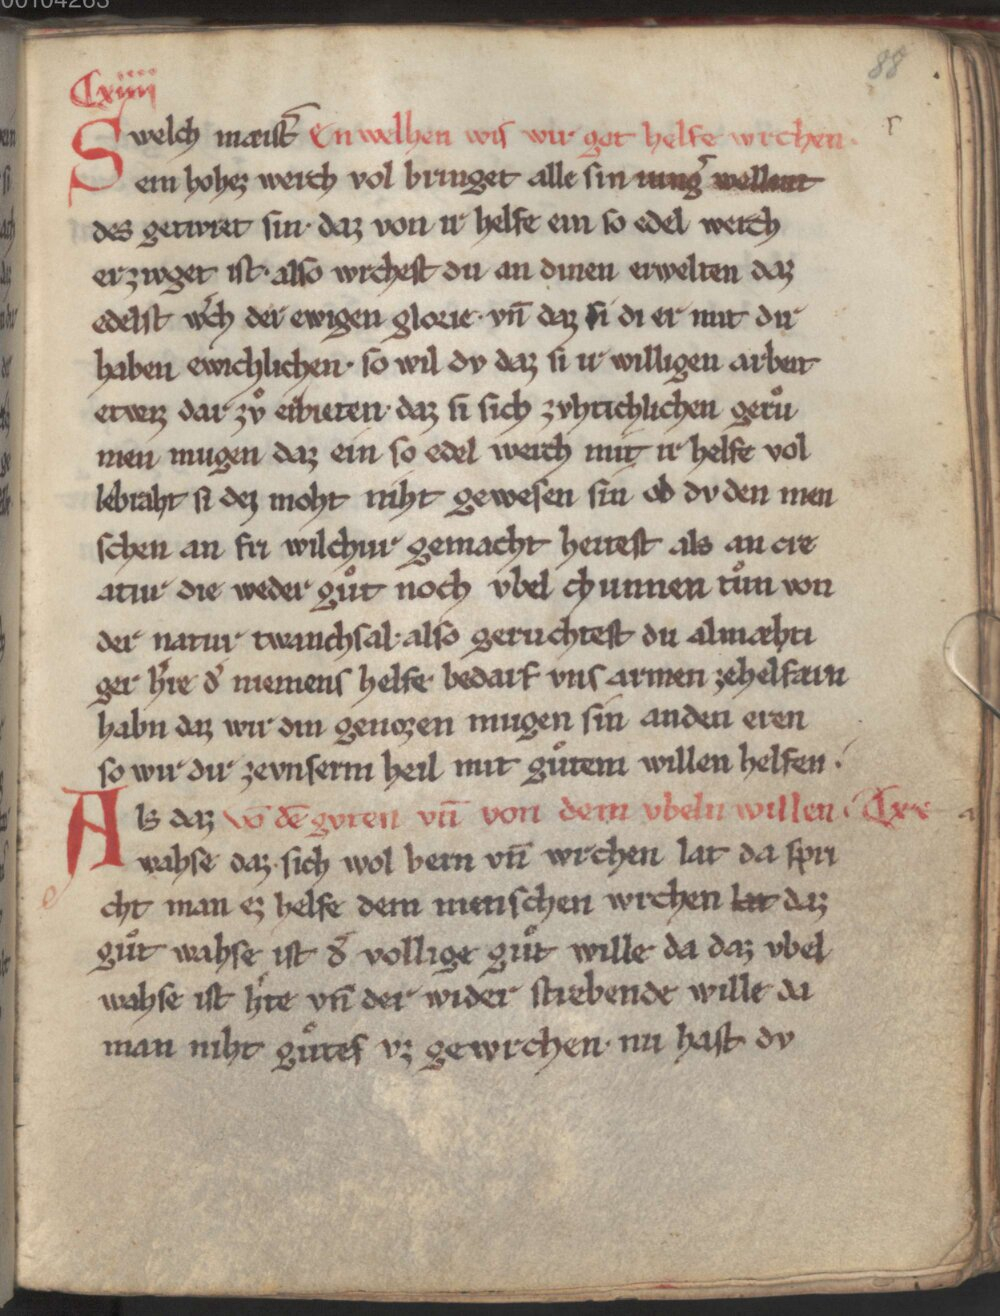 00104263
88
Cxiiii
Swelch maist͛ En welhen wis wir got helfe wrchen.
ein hohez werch vol bringet alle sin iung͛ wellent
des getivret sin· daz von ir helfe ein so edel werch
erzivget ist· also wrchest du an dinen erwelten daz
edelst w͛ch der ewigen glorie· vn̄ daz si di er mit dir
haben ewichlichen· so wil dv daz si ir willigen arbeit
etwez dar zvͦ erbieten· daz si sich zvhtichlichen gervͦ
men mugen daz ein so edel werch mit ir helfe vol
lebraht si dez moht niht gewesen sin ob dv den men
schen an fri wilchiur gemacht hettest als an cre
atiur die weder guͦt noch vbel chunnen tuͦn von
der natur twanchsal· also geruchtest du almæhti
ger h͛re d͛ niemens helfe bedarf vns armen zehelfærn
habn daz wir din genozen mugen sin anden eren
so wir dir zevnserm heil mit guͦtem willen helfen·
Als daz vō dē gvten vn̄ von dem vbeln willen· Cxv
wahse daz sich wol bern vn̄ wrchen lat da spri
cht man ez helfe dem menschen wrchen lat daz
guͦt wahse ist d͛ vollige guͦt wille da daz vbel
wahse ist h͛te vn̄ der wider strebende wille da
man niht guͦtes vz gewrchen· nu hast dv